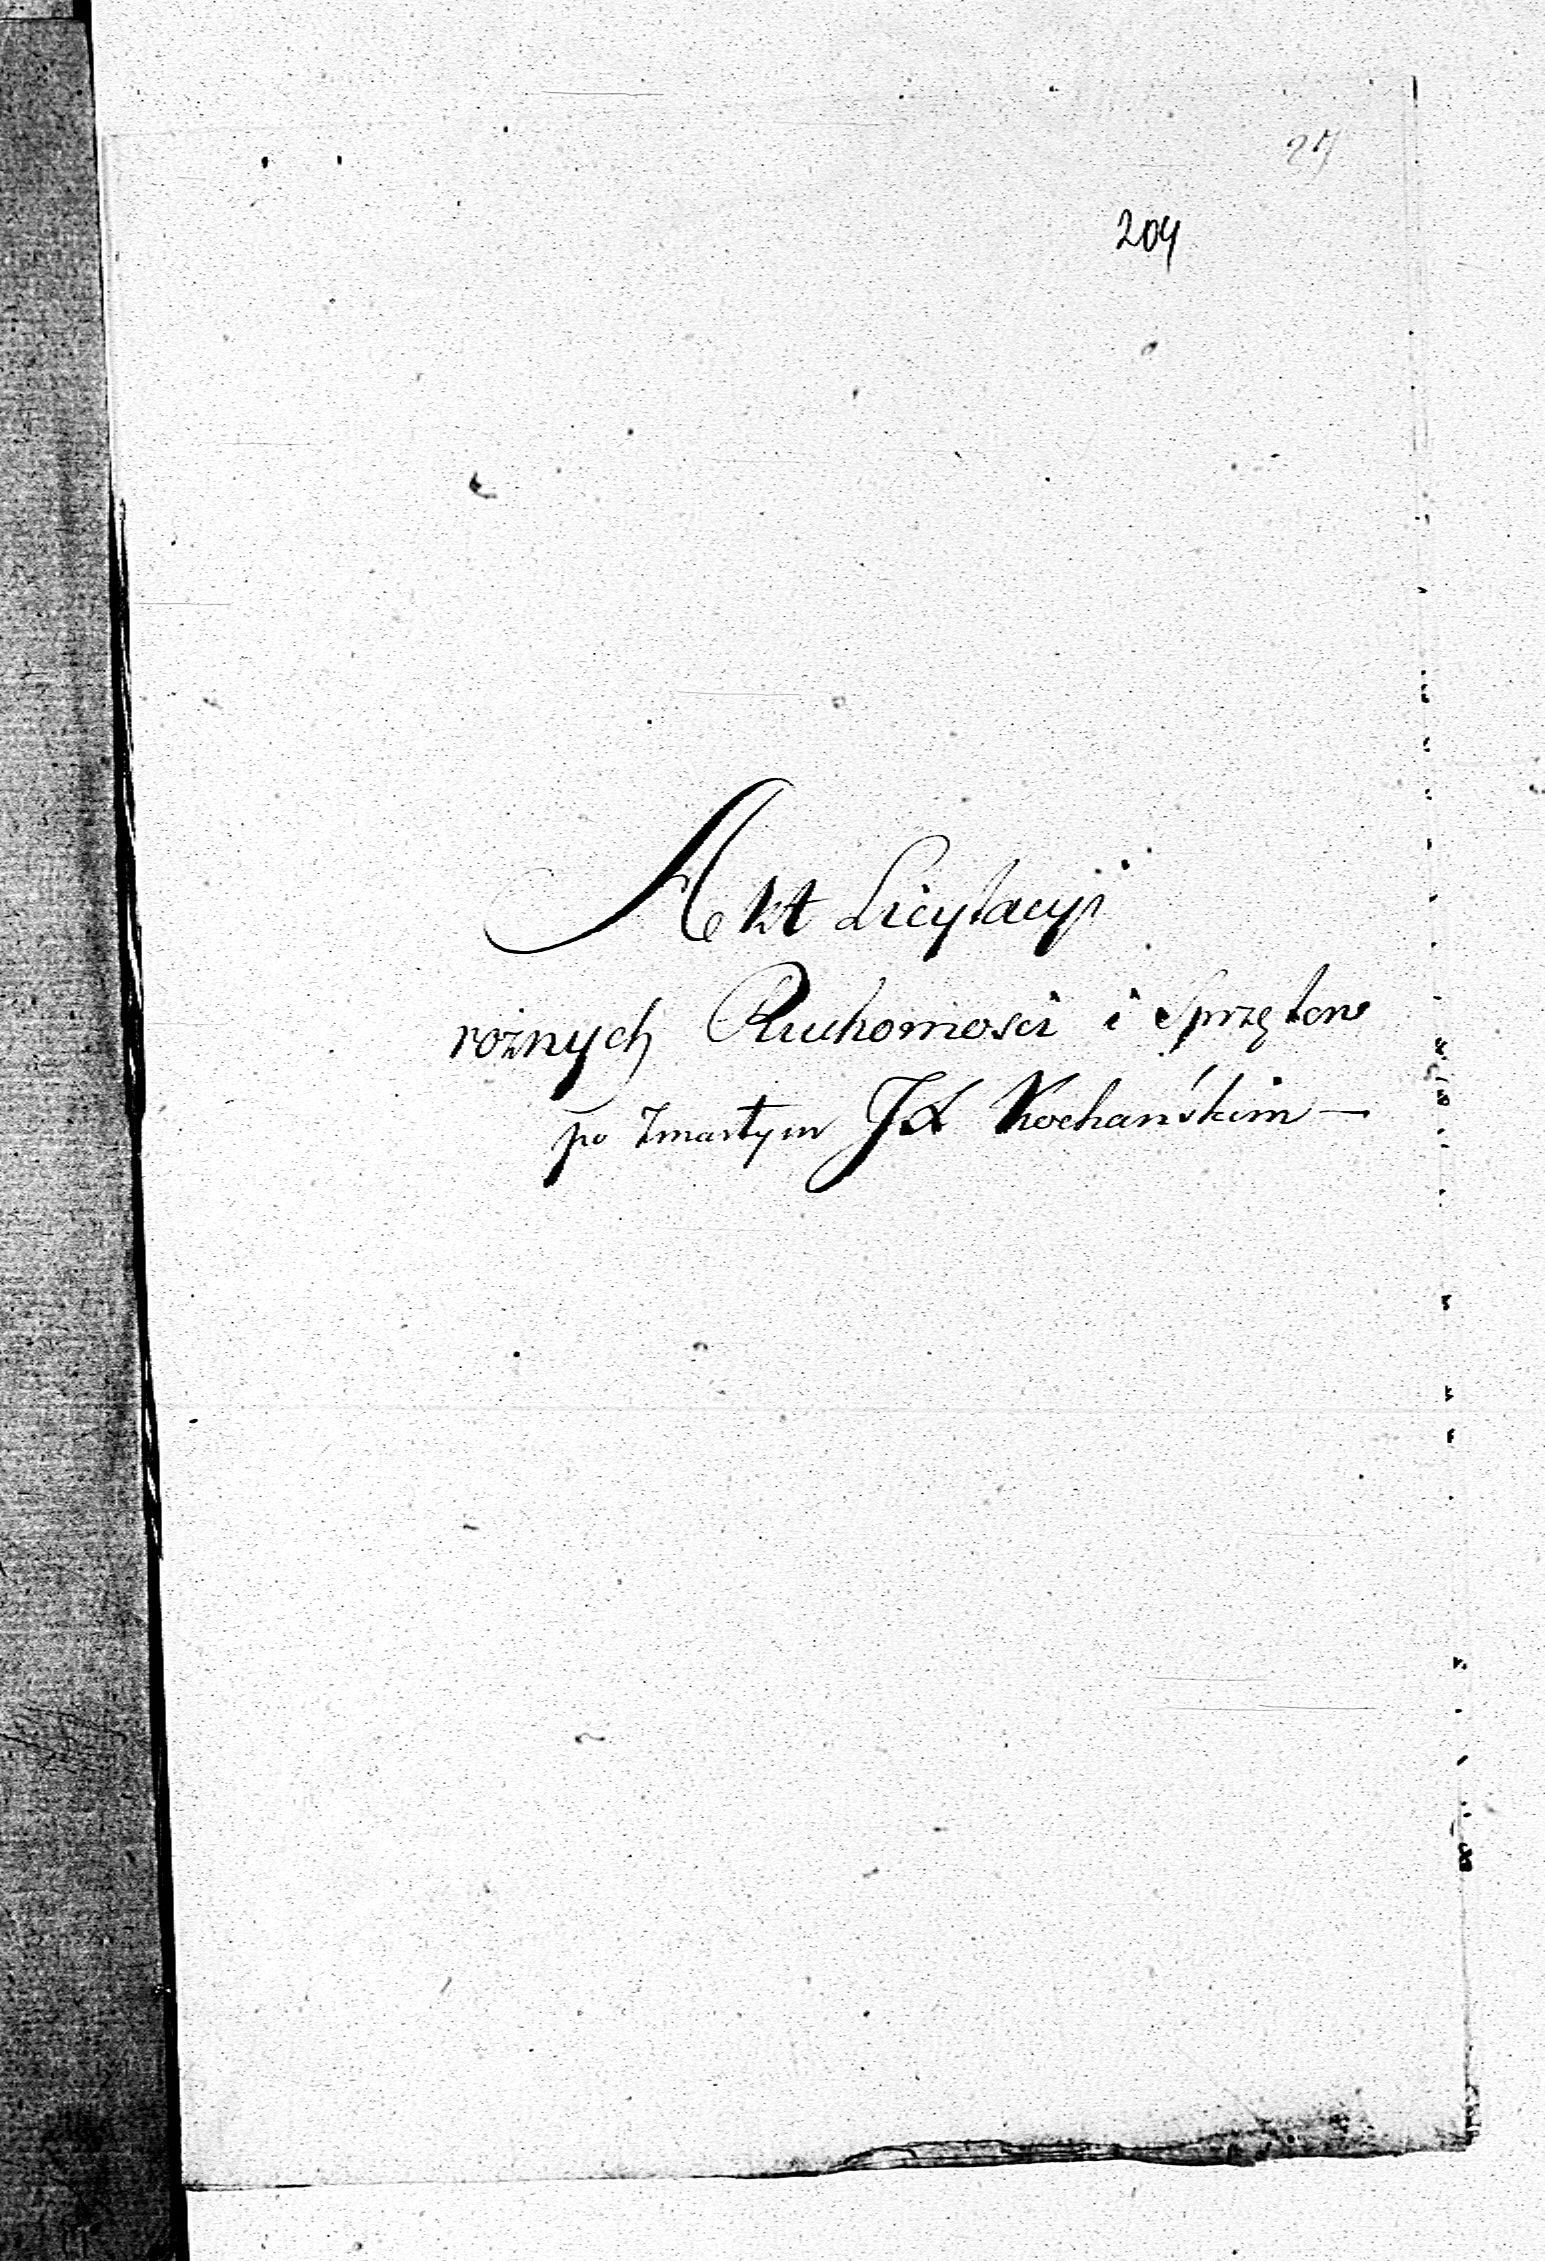 27
204
Akt Licytacyi
rożnych Ruchomości i Sprzętow
po Zmartym JX Kochańskim —